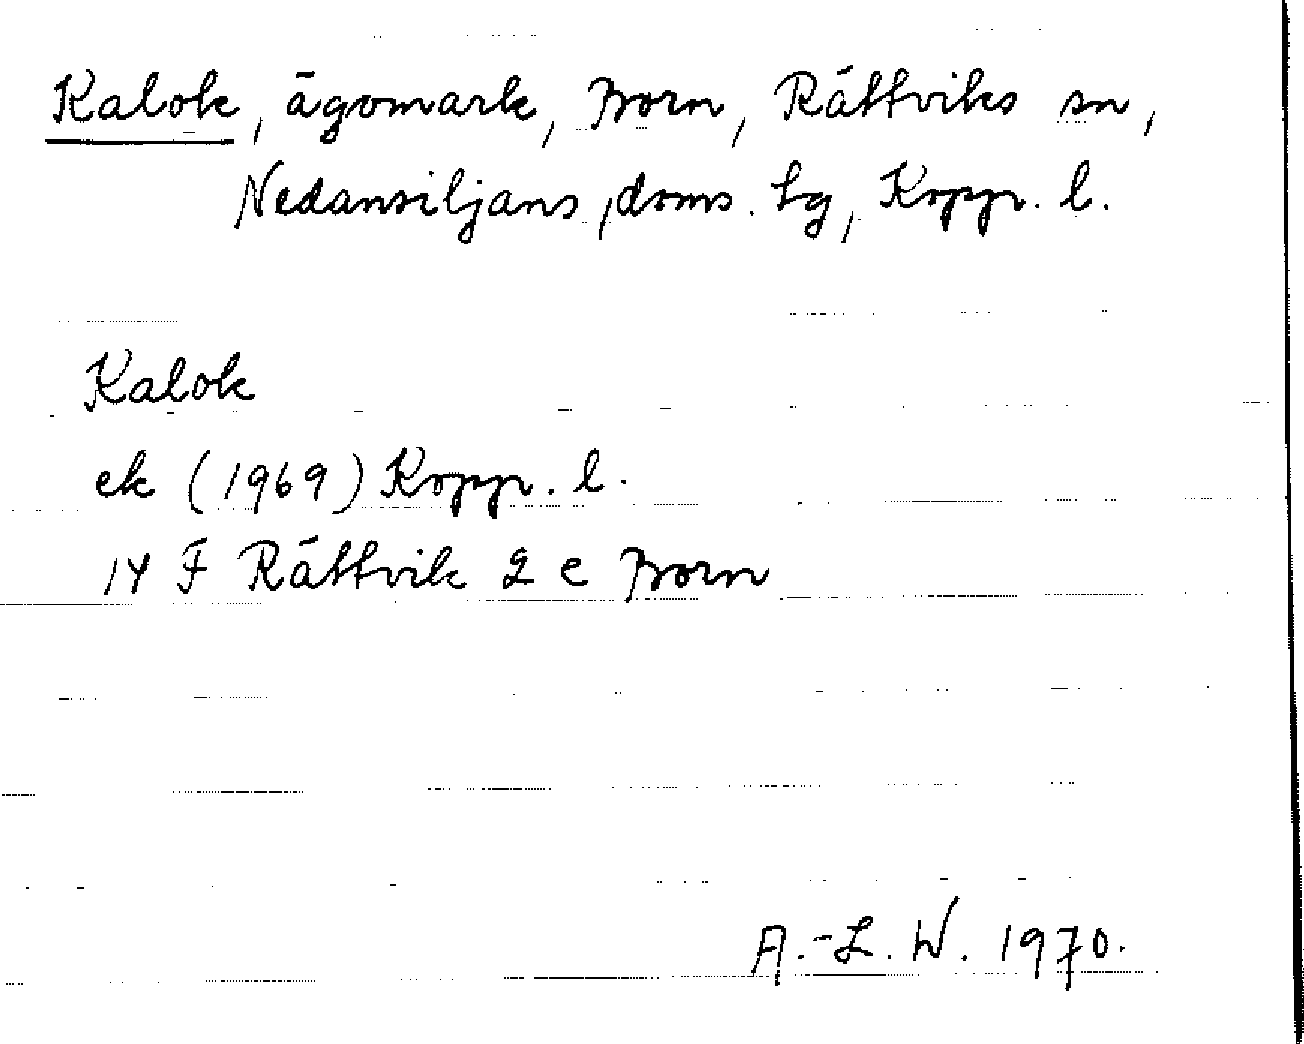 Kalok, ägomark, Born, Rättviks sn,
Nedansiljans, doms. lg, Kopp. l.
Kalok
ek (1969) Kopp. l.
14 F Rättvik 2 e Born
A.-L. W. 1970.